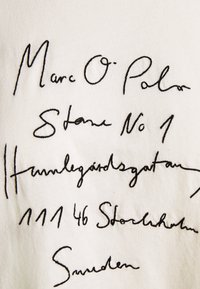 Marc O' Polo
Store No 1
Humlegårdsgatan
111 46 Stockholm
Sweden